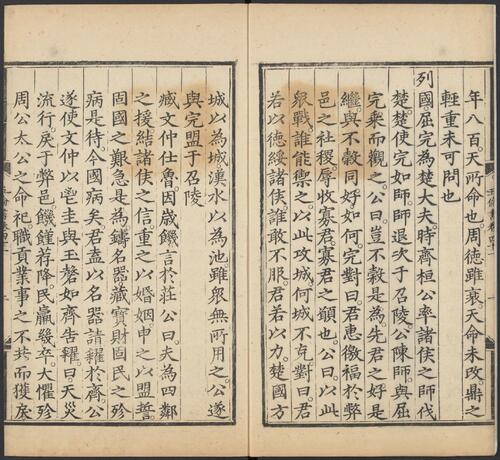 年八百天所命也周德雖衰天命未改鼎之
輕重未可問也
列國屈完為楚大夫時齊桓公率諸侯之師伐
楚楚使完如師師退次于召陵公陳師與屈
完乘而觀之公曰豈不穀是為先君之好是
繼與不穀同好如何完對曰君惠徼福於弊
邑之社稷辱收寡君寡君之願也公曰以此
衆戰誰能禦之以此攻城何城不克對曰君
若以德綏諸侯誰敢不服君若以力楚國方
城以為城漢水以為池雖衆無所用之公遂
與完盟于召陵
臧文仲仕魯因歲饑言於莊公曰夫為四鄰
之援結諸侯之信重之以婚姻申之以盟誓
固國之艱急是為鑄名器藏寶財固民之殄
病是待今國病矣君盍以名器請糴於齊公
遂使文仲以鬯圭與玉磬如齊告糴曰天災
流行戾于弊邑饑饉荐降民羸幾卒大懼殄
周公太公之命祀職貢業事之不共而獲戾